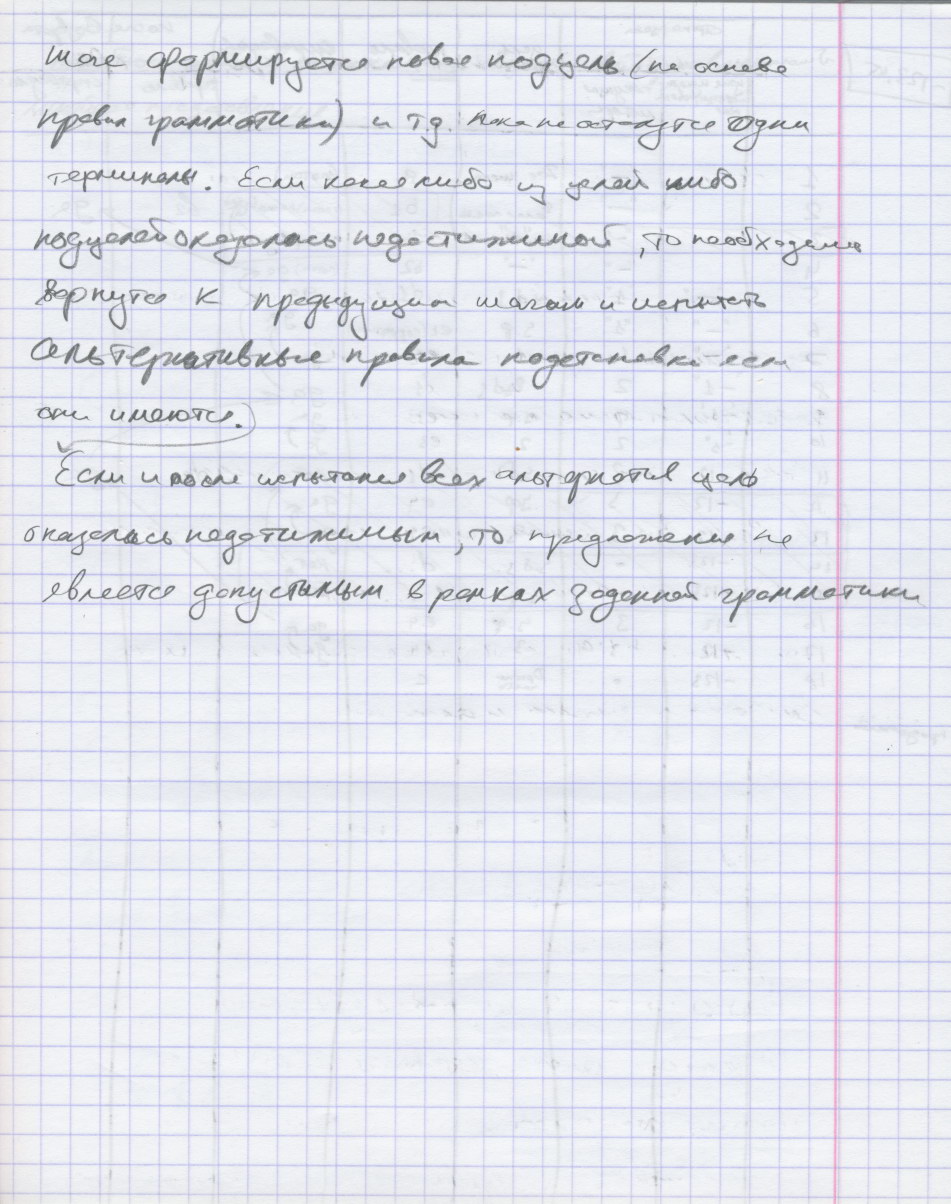 шаге формируется новая подцель (на основе
правил грамматики) и т.д. пока не останутся одни
терминалы. Если какая либо из целей либо
подцелей оказалась недостижимой, то необходимо
вернутся к предыдущим шагам и испытать
альтернативные правила подстановки если
они имеются.
Если и после испытания всех альтернатив цель
оказалась недостижимым, то предложение не
является допустимым в рамках заданной грамматики